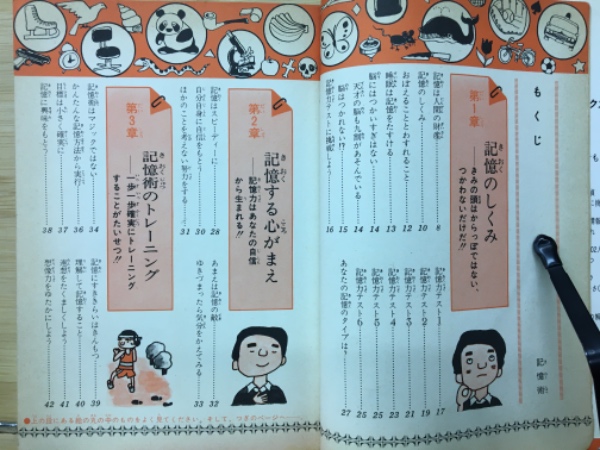 もくじ
記憶術
第1章
記憶のしくみ
――きみの頭はからっぽではない、
つかわないだけだ!!
記憶は人間の財産 8
記憶のしくみ 10
おぼえることとわすれること 12
睡眠は記憶をたすける 13
脳にはつかいすぎはない 14
天才の脳も九割があそんでいる 14
脳はつかれない!? 15
記憶力テストに挑戦しよう 16
記憶力テスト1 17
記憶力テスト2 19
記憶力テスト3 21
記憶力テスト4 23
記憶力テスト5 25
記憶力テスト6 25
あなたの記憶のタイプは? 27
第2章
記憶する心がまえ
――記憶力はあなたの自信
から生まれる!!
記憶はスト―ディーに 28
自分自身に自信をもとう 30
ほかのことを考えない努力をする 31
あまえは記憶の敵 32
ゆきづまったら気分をかえてみる 33
第3章
記憶術のトレーニング
――一歩一歩確実にトレーニング
することがたいせつ!!
記憶術はマジックではない 34
かんたんな記憶方法から実行 36
目標は小さく確実に 37
記憶に興味をもとう 38
記憶にすききらいはきんもつ 39
理解して記憶すること 40
連想をたくましくしよう 41
想像力をゆたかにしよう 42
●上の段にある絵の丸の中のものをよく見てください。そして、つぎのページへ